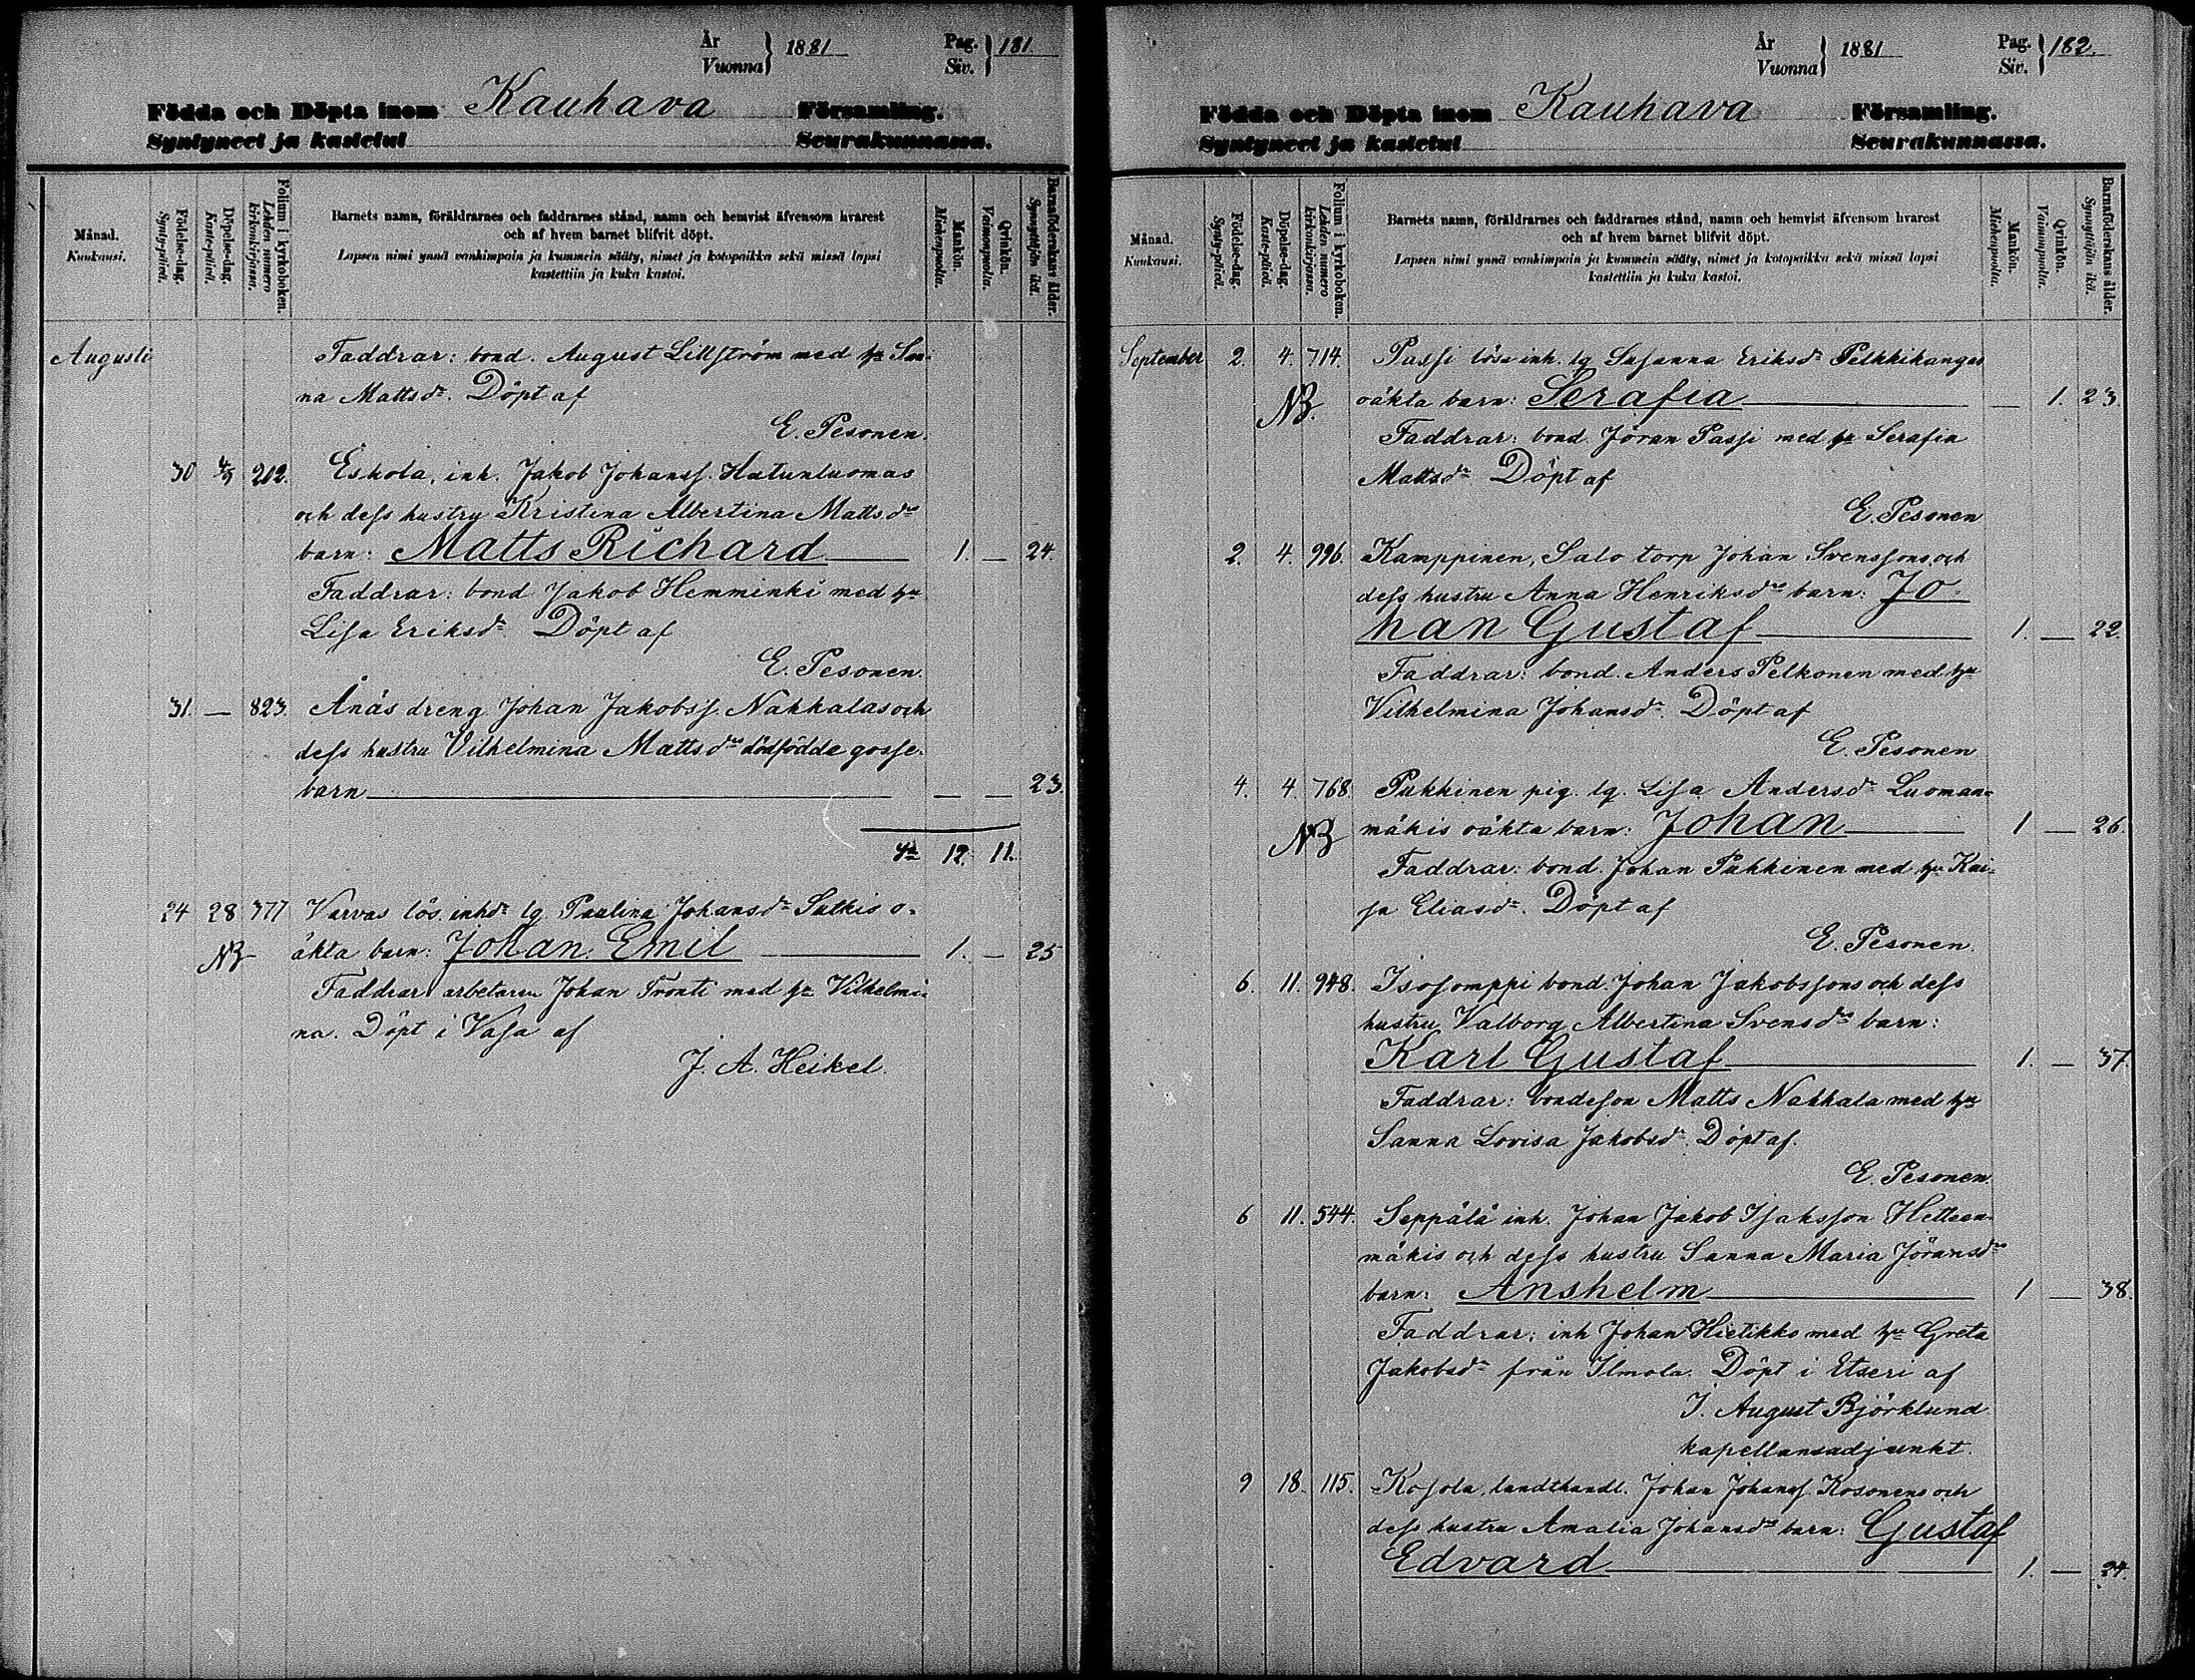 År
Vuonna } 1881
Pag.
Siv. } 181
Födda och Döpta inom Kauhava Församling.
Syntyneet ja kastetut Seurakunnassa.
Månad.
Kuukausi.
Födelse-dag.
Synty-päivä.
Döpelse-dag.
Kaste-päivä.
Folium i kyrkoboken.
Lehden numero kirkonkirjassa.
Barnets namn, föräldrarnes och faddrarnes stånd, namn och hemvist äfvensom hvarest
och af hvem barnet blifvit döpt.
Lapsen nimi ynnä vanhimpain ja kummein sääty, nimet ja kotopaikka sekä missä lapsi
kastettiin ja kuka kastoi.
Mankön.
Miehenpuolta.
Qvinkön.
Vaimonpuolta.
Barnaföderskans ålder.
Synnyttäjän ikä.
Augusti Faddrar: bond. August Lillström med hu San-
na Mattsdr. Döpt af
E. Pesonen.
30 4/9 202. Eskola, inh. Jakob Johanss. Hatunluomas
och dess hustru Kristina Albertina Mattsdrs
barn: Matts Richard 1. — 24.
Faddrar: bond Jakob Hemminki med hu
Lisa Eriksdr. Döpt af
E. Pesonen.
31. — 823. Ånäs dreng Johan Jakobss. Nahkalas och
dess hustru Vilhelmina Mattsdrs dödfödde gosse-
barn — — 23.
12. 11.
24 28 377 Varvas lös. inhdr lg Paulina Johansdr Sulkis o-
NB äkta barn: Johan Emil 1. — 25
Faddrar arbetaren Johan Tronti med hu Vilhelmi-
na. Döpt i Vasa af
J. A. Heikel.
År
Vuonna } 1881
Pag.
Siv. } 182.
Födda och Döpta inom Kauhava Församling.
Syntyneet ja kastetut Seurakunnassa.
Månad.
Kuukausi.
Födelse-dag.
Synty-päivä.
Döpelse-dag.
Kaste-päivä.
Folium i kyrkoboken.
Lehden numero kirkonkirjassa.
Barnets namn, föräldrarnes och faddrarnes stånd, namn och hemvist äfvensom hvarest
och af hvem barnet blifvit döpt.
Lapsen nimi ynnä vanhimpain ja kummein sääty, nimet ja kotopaikka sekä missä lapsi
kastettiin ja kuka kastoi.
Mankön.
Miehenpuolta.
Qvinkön.
Vaimonpuolta.
Barnaföderskans ålder.
Synnyttäjän ikä.
September 2. 4. 714. Passi lösa inh. lg Susanna Eriksdr Pelkkikangas
NB. oäkta barn: Serafia — 1. 23.
Faddrar: bond. Jöran Passi med hu Serafia
Mattsdr Döpt af
E. Pesonen
2. 4. 996. Kamppinen, Salo torp Johan Svenssons och
dess hustru Anna Henriksdrs barn: Jo-
han Gustaf 1. — 22.
Faddrar: bond. Anders Pelkonen med hu
Vilhelmina Johansdr. Döpt af
E. Pesonen
4. 4. 768. Pukkinen pig. lg. Lisa Andersdr Luoman-
NB mäkis oäkta barn: Johan 1 — 26.
Faddrar: bond. Johan Pukkinen med hu Kai-
sa Eliasdr. Döpt af
E. Pesonen.
6. 11. 948. Isosomppi bond. Johan Jakobssons och dess
hustru Valborg Albertina Svensdrs barn:
Karl Gustaf 1. — 37.
Faddrar: bondeson Matts Nahkala med hu
Sanna Lovisa Jakobsdr. Döpt af.
E. Pesonen.
6 11. 544. Seppälä inh. Johan Jakob Isaksson Hetteen-
mäkis och dess hustru Sanna Maria Jöransdrs
barn: Anshelm 1 — 38.
Faddrar: inh Johan Hietikko med hu Greta
Jakobsdr från Ilmola. Döpt i Etseri af
J. August Björklund
kapellansadjunkt.
9 18. 115. Kosola, landthandl. Johan Johanss. Kosonens och
dess hustru Amalia Johansdrs barn: Gustaf
Edvard 1. — 24.